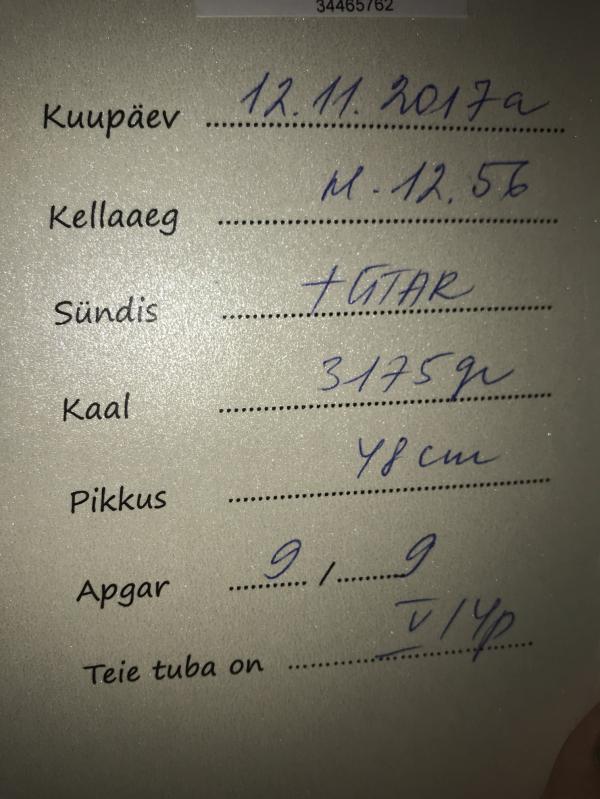 34465762
Kuupäev 12.11.2017a
Kellaaeg 12.56
Sündis TÜTAR
Kaal 3175gr
Pikkus 48cm
Apgar 9 / 9
Teie tuba on V/4p